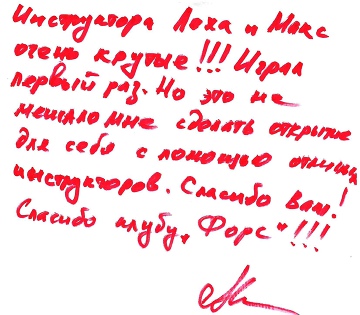 Инструктора Леха и Макс
очень крутые!!! Играл
первый раз. Но это не
мешало мне сделать открытие
для себя с помощью отличных
инструкторов. Спасибо Вам!
Спасибо клубу "Форс"!!!